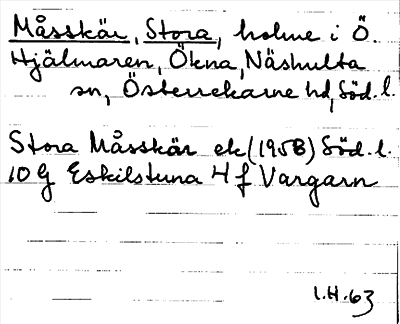 Måsskär, Stora, holme i Ö.
Hjälmaren, Ökna, Näshulta
sn, Österrekarne hd, Söd. l.
Stora Måsskär ek (1958) Söd. l.
10 G Eskilstuna 4 f Vargarn
I.H. 63